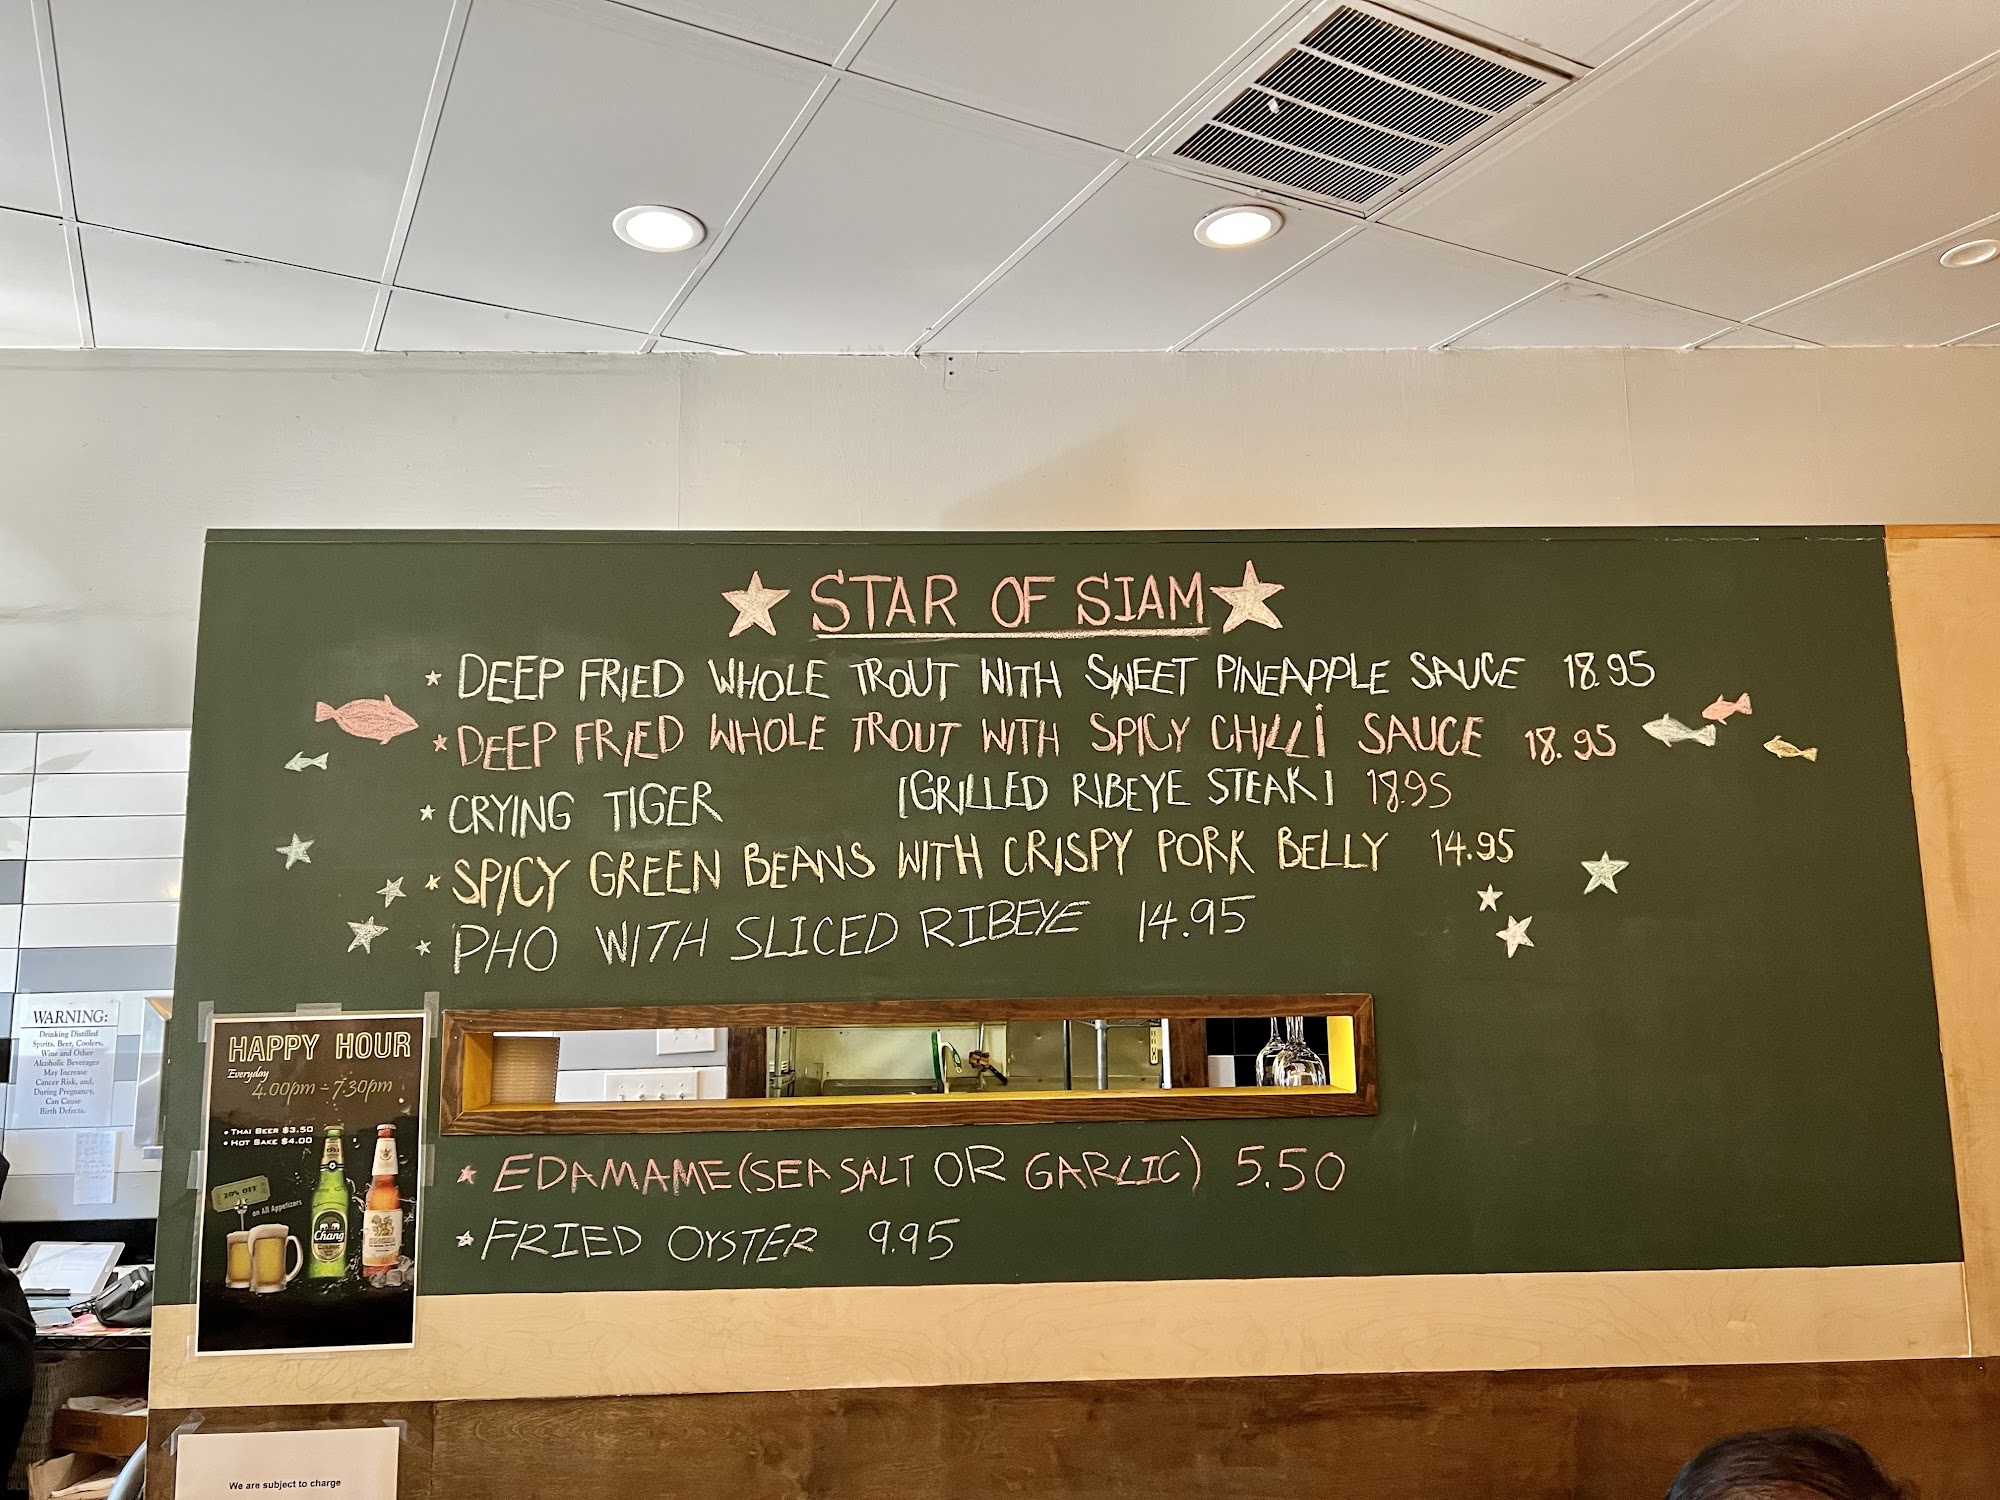 STAR OF SIAM
DEEP FRIED WHOLE TROUT WITH SWEET PINEAPPLE SAUCE 18.95
DEEP FRIED WHOLE TROUT WITH SPICY CHILLi SAUCE 18.95
CRYING TIGER [GRILLED RIBEYE STEAK] 18.95
SPICY GREEN BEANS WITH CRISPY PORK BELLY 14.95
PHO WITH SLICED RIBEYE 14.95
EDAMAME (SEA SALT OR GARLIC) 5.50
FRIED OYSTER 9.95
HAPPY HOUR
Everyday
4.00pm - 7.30pm
• THAI BEER $3.50
• HOT SAKE $4.00
20% OFF
on All Appetizers
Chang
WARNING:
Drinking Distilled
Spirits, Beer, Coolers,
Wine and Other
Alcoholic Beverages
May Increase
Cancer Risk, and,
During Pregnancy,
Can Cause
Birth Defects.
We are subject to charge